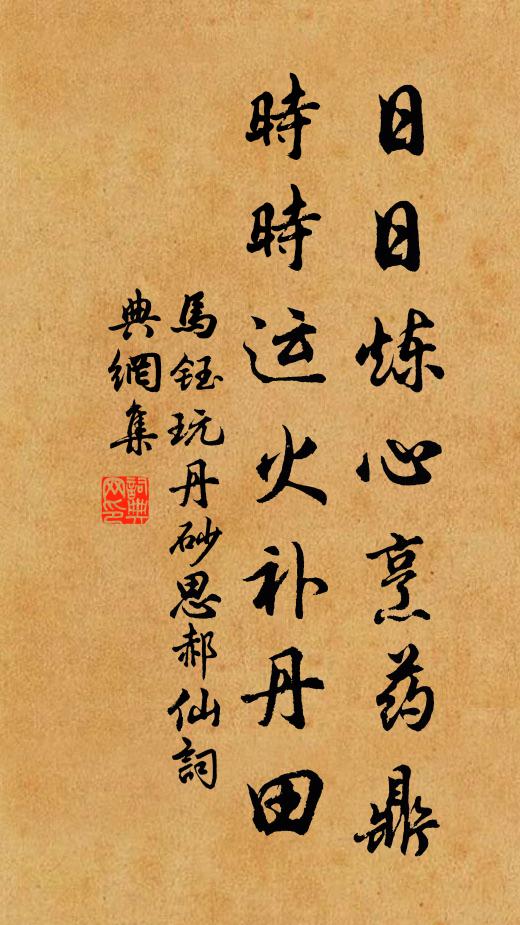 日日炼心烹药鼎
時時运火补丹田
馬鈺玩丹砂思郝仙詞
典網集
詞典网印